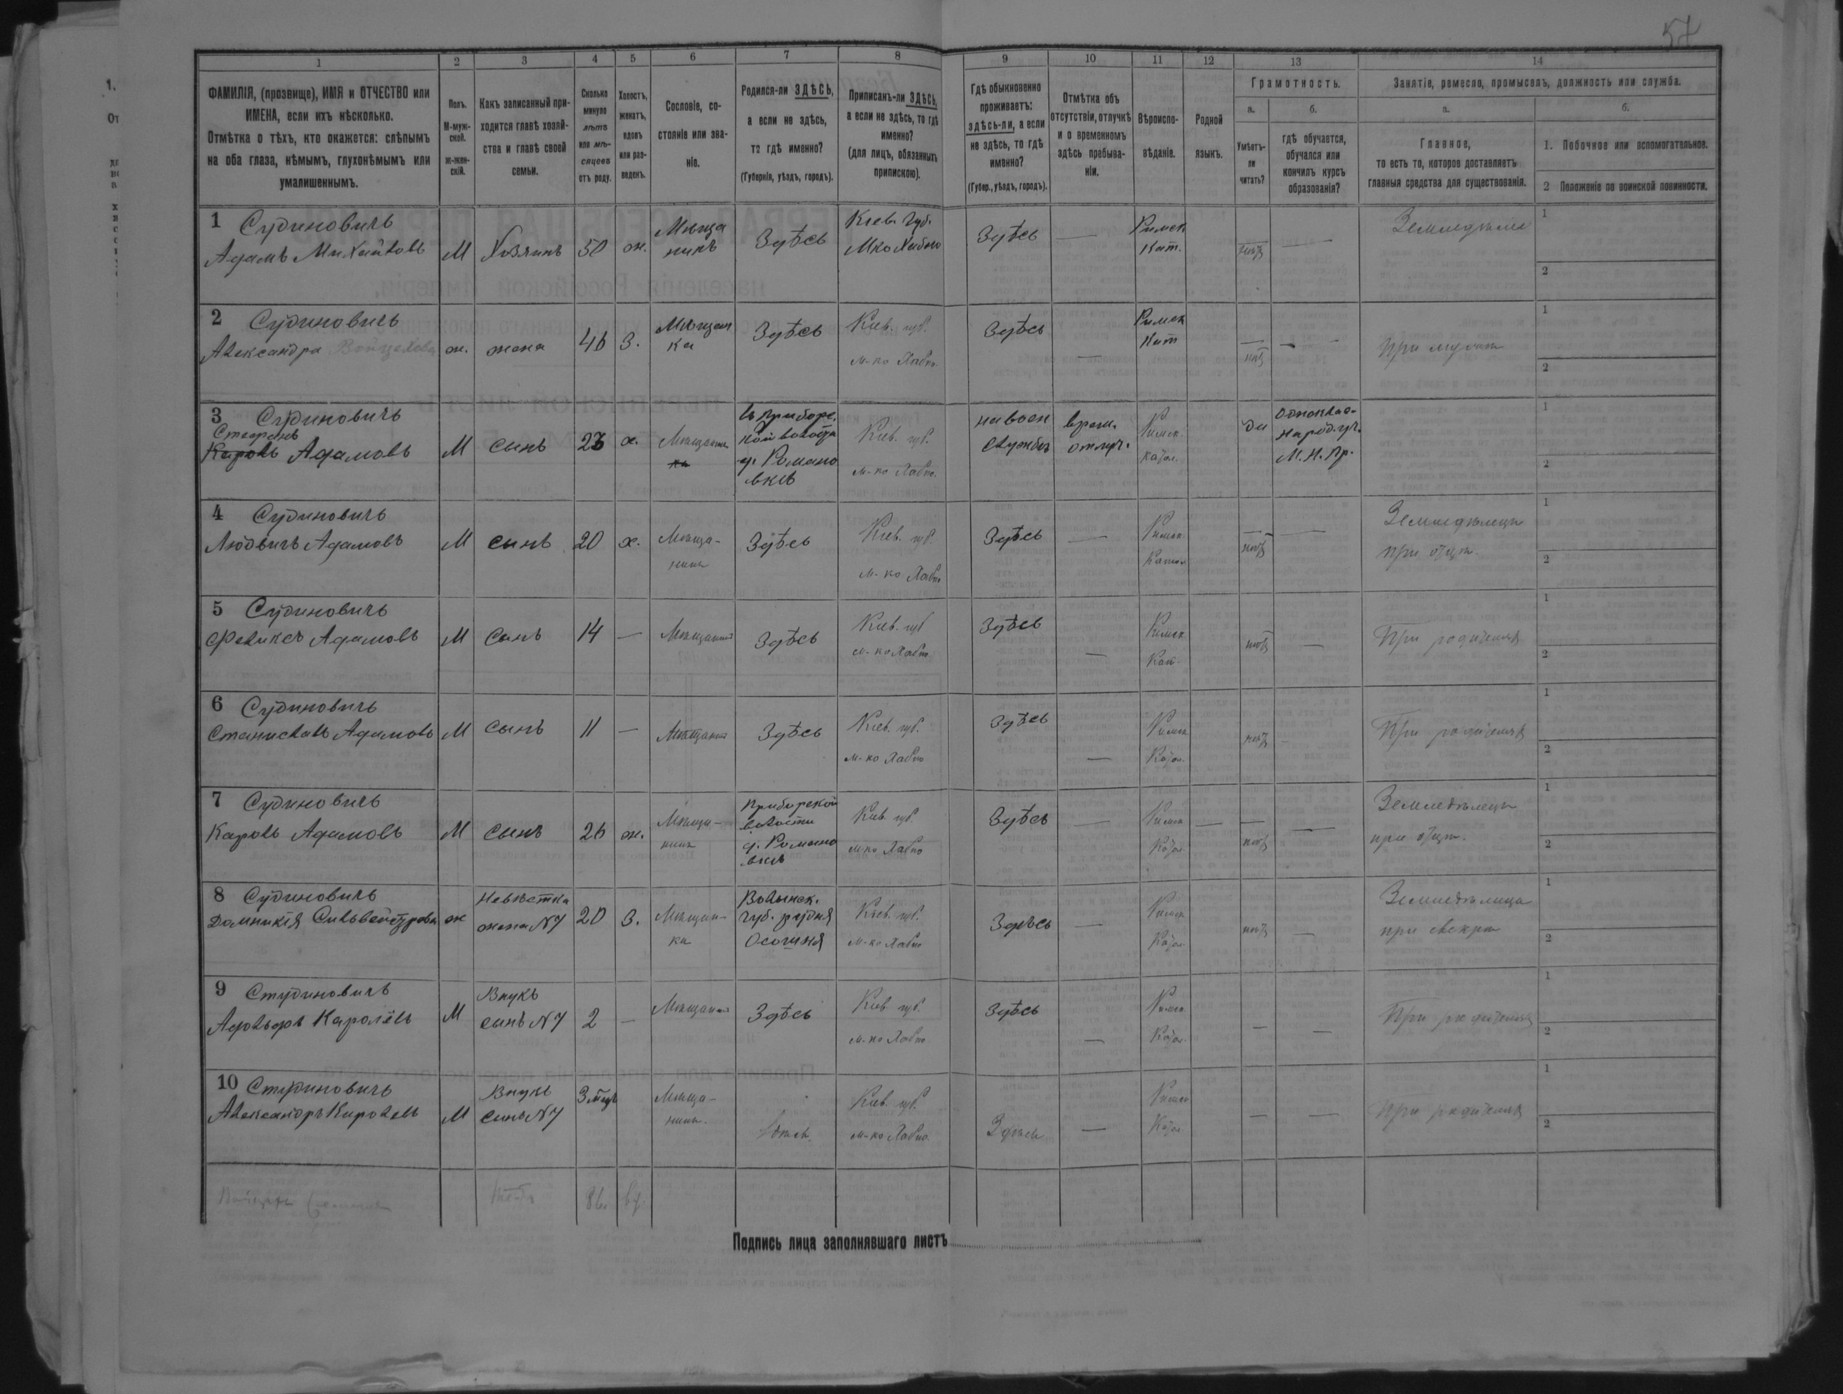 57
1 2 3 4 5 6 7 8 9 10 11 12 13 14
ФАМИЛІЯ, (прозвище), ИМЯ и ОТЧЕСТВО или
ИМЕНА, если ихъ нѣсколько.
Отмѣтка о тѣхъ, кто окажется: слѣпымъ
на оба глаза, нѣмымъ, глухонѣмымъ или
умалишеннымъ.
Полъ.
М-муж-
ской.
ж-жен-
скій.
Какъ записанный при-
ходится главѣ хозяй-
ства и главѣ своей
семьи.
Сколько
минуло
лѣтъ
или мѣ-
сяцевъ
отъ роду.
Холостъ,
женатъ,
вдовъ
или раз-
веденъ.
Сословіе, со-
стояніе или зва-
ніе.
Родился-ли ЗДѢСЬ,
а если не здѣсь,
то гдѣ именно?
(Губернія, уѣздъ, городъ).
Приписанъ-ли ЗДѢСЬ,
а если не здѣсь, то гдѣ
именно?
(для лицъ, обязанныхъ
припискою).
Гдѣ обыкновенно
проживаетъ:
здѣсь-ли, а если
не здѣсь, то гдѣ
именно?
(Губер., уѣздъ, городъ).
Отмѣтка объ
отсутствіи, отлучкѣ
и о временномъ
здѣсь пребыва-
ніи.
Вѣроиспо-
вѣданіе.
Родной
языкъ.
Грамотность.
а.
Умѣетъ-
ли
читать?
б.
гдѣ обучается,
обучался или
кончилъ курсъ
образованія?
Занятіе, ремесло, промыселъ, должность или служба.
а.
Главное,
то есть то, которое доставляетъ
главныя средства для существованія.
б.
1. Побочное или вспомогательное.
2 Положеніе по воинской повинности.
1 Судиновичъ
Адамъ Михайловъ М Хозяинъ 50 ж. Мѣща
нинъ Здѣсь Кіев. Губ.
Мко Хабно Здѣсь — Римск
Кат. нѣтъ — Земледѣлец 1
2
2 Судиновичъ
Александра ж. жена 46 З. Мѣщан
ка Здѣсь Кіев. губ.
м-ко Хабно Здѣсь — Римск
Кат — нѣтъ — При мужѣ 1
2
3 Судиновичъ
Стефанъ
Адамовъ М сынъ х. Мѣщанин
волости
д. Романо
вкѣ Кіев. губ.
м-ко Хабно на воен
службѣ врем.
отлуч. Римск
катол. да
народ. уч.
М. Н. Пр. 1
2
4 Судиновичъ
Людвигъ Адамовъ М сынъ 20 х. Мѣща-
нинъ Здѣсь Кіев. губ.
м-ко Хабно Здѣсь — Римск
Катол — нѣтъ — Земледѣлецъ
при отцѣ. 1
2
5 Судиновичъ
Феликсъ Адамовъ М Сынъ 14 — Мѣщанинъ Здѣсь Кіев. губ
м-ко Хабно Здѣсь — Римск
Кат. нѣтъ — При родителяхъ 1
2
6 Судиновичъ
Станиславъ Адамовъ М сынъ 11 — Мѣщанин Здѣсь Кіев. губ.
м-ко Хабно Здѣсь — Римск
Катол нѣтъ — При родителяхъ 1
2
7 Судиновичъ
Кароль Адамовъ М сынъ 26 ж. Мѣща-
нинъ Приборской
волости
д. Романо
вкѣ Кіев. губ
м-ко Хабно Здѣсь — Римск
Катол — — нѣтъ — Земледѣлецъ
при отцѣ. 1
2
8 Судиновичъ
Доминикія Сильвестровна ж Невѣстка
жена N7 20 З. Мѣщан-
ка Волынск.
губ. рудня
Осошня Кіев. губ.
м-ко Хабно Здѣсь — Римск
Катол нѣтъ — Земледѣлица
при свекрѣ 1
2
9 Студиновичъ
Адольфъ Каролёвъ М Внукъ
сынъ N7 2 — Мѣщанин Здѣсь Кіев. губ.
м-ко Хабно Здѣсь — Римск
Катол — — При родителяхъ 1
2
10 Студиновичъ
Александръ Каролевъ М Внукъ
Сынъ N7 3 мѣц Мѣща-
нинъ. Кіев. губ.
м-ко Хабно Здѣсь — Римск
Катол — — При родителяхъ 1
2
Подпись лица заполнявшаго листъ